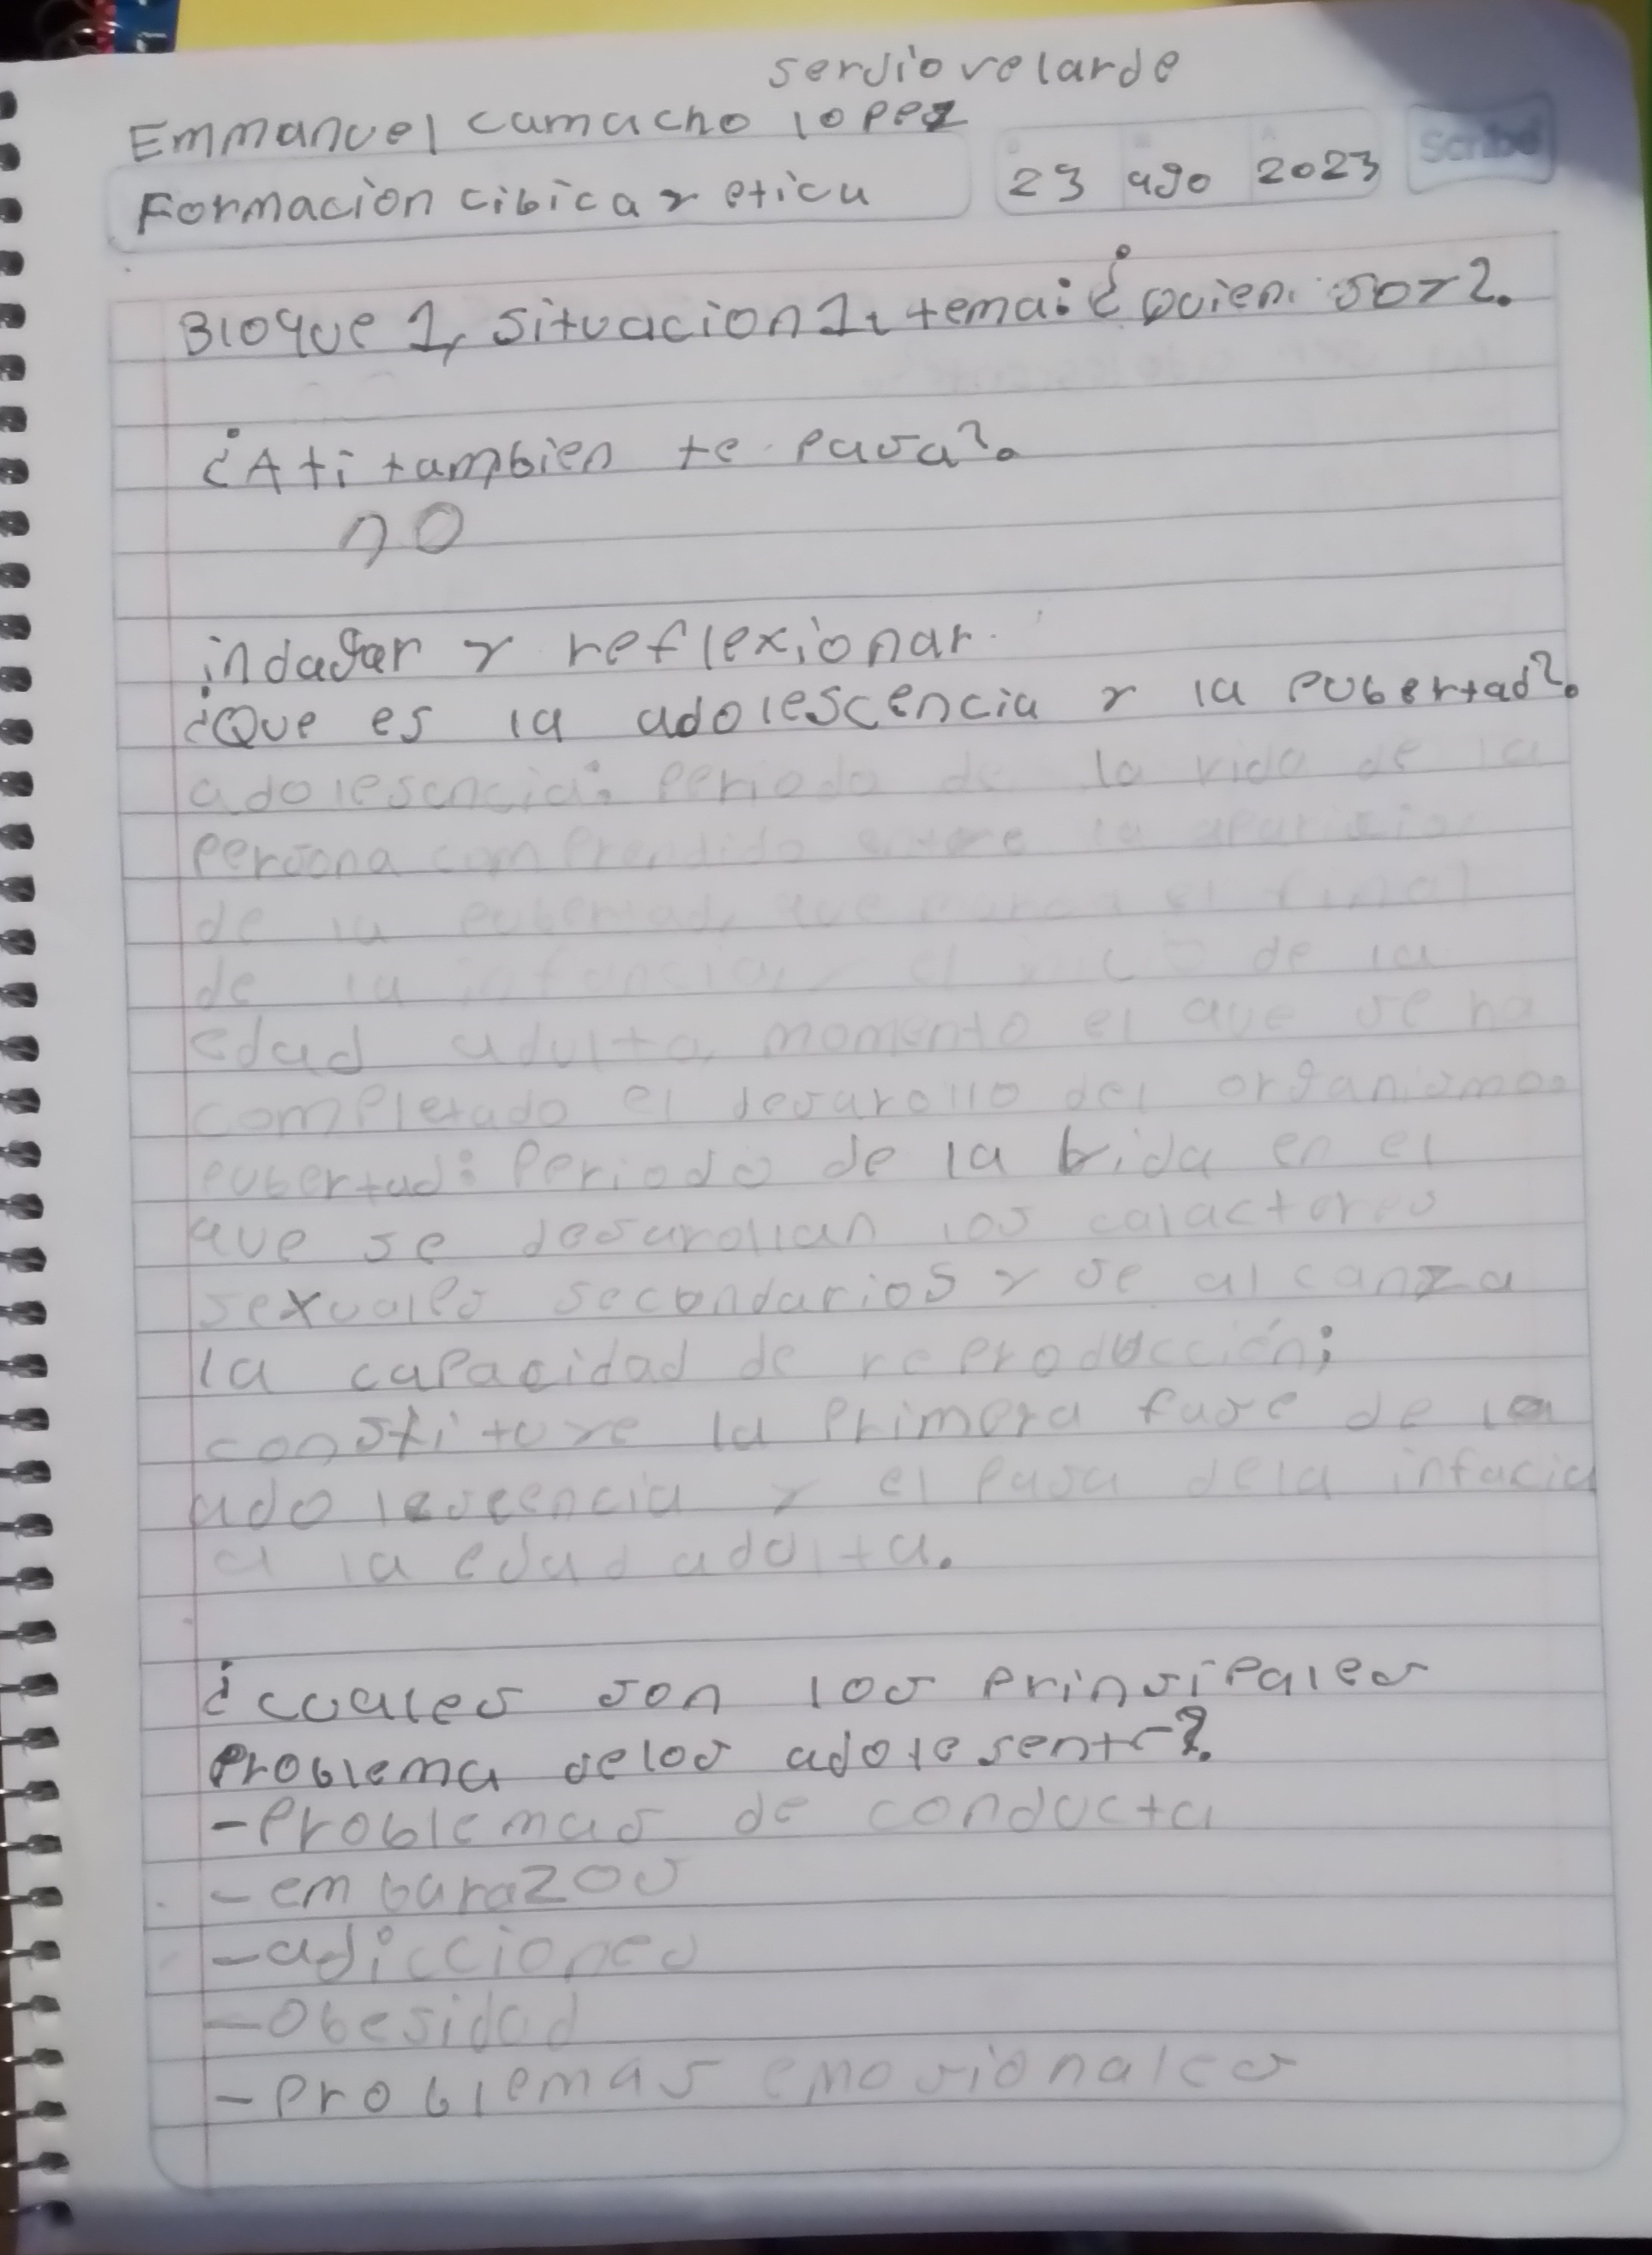 serjio velarde
Emmanuel camacho lopez
Formacion cibica y etica
29 ago 2023
Scribe
Bloque 1, situacion 1, tema: ¿quien soy?.
¿A ti tambien te pasa?.
no
indagar y reflexionar.
¿Que es la adolescencia y la pubertad?.
adolesencia: periodo de la vida de la
persona comprendido entre la aparicion
de la pubertad, que marca el final
de la infancia, y el inicio de la
edad adulta, momento el que se ha
completado el desarollo del organismo.
pubertad: Periodo de la vida en el
que se desarollan los calactores
sexuales secundarios y se alcanza
la capacidad de reproducción;
constituye la primera fase de la
adolescencia y el pasa dela infacia
a la edad adulta.
¿cuales son los prinsipales
problema delos adolesente?.
-Problemas de conducta
-embarazos
-adicciones
-obesidad
-problemas emosionales